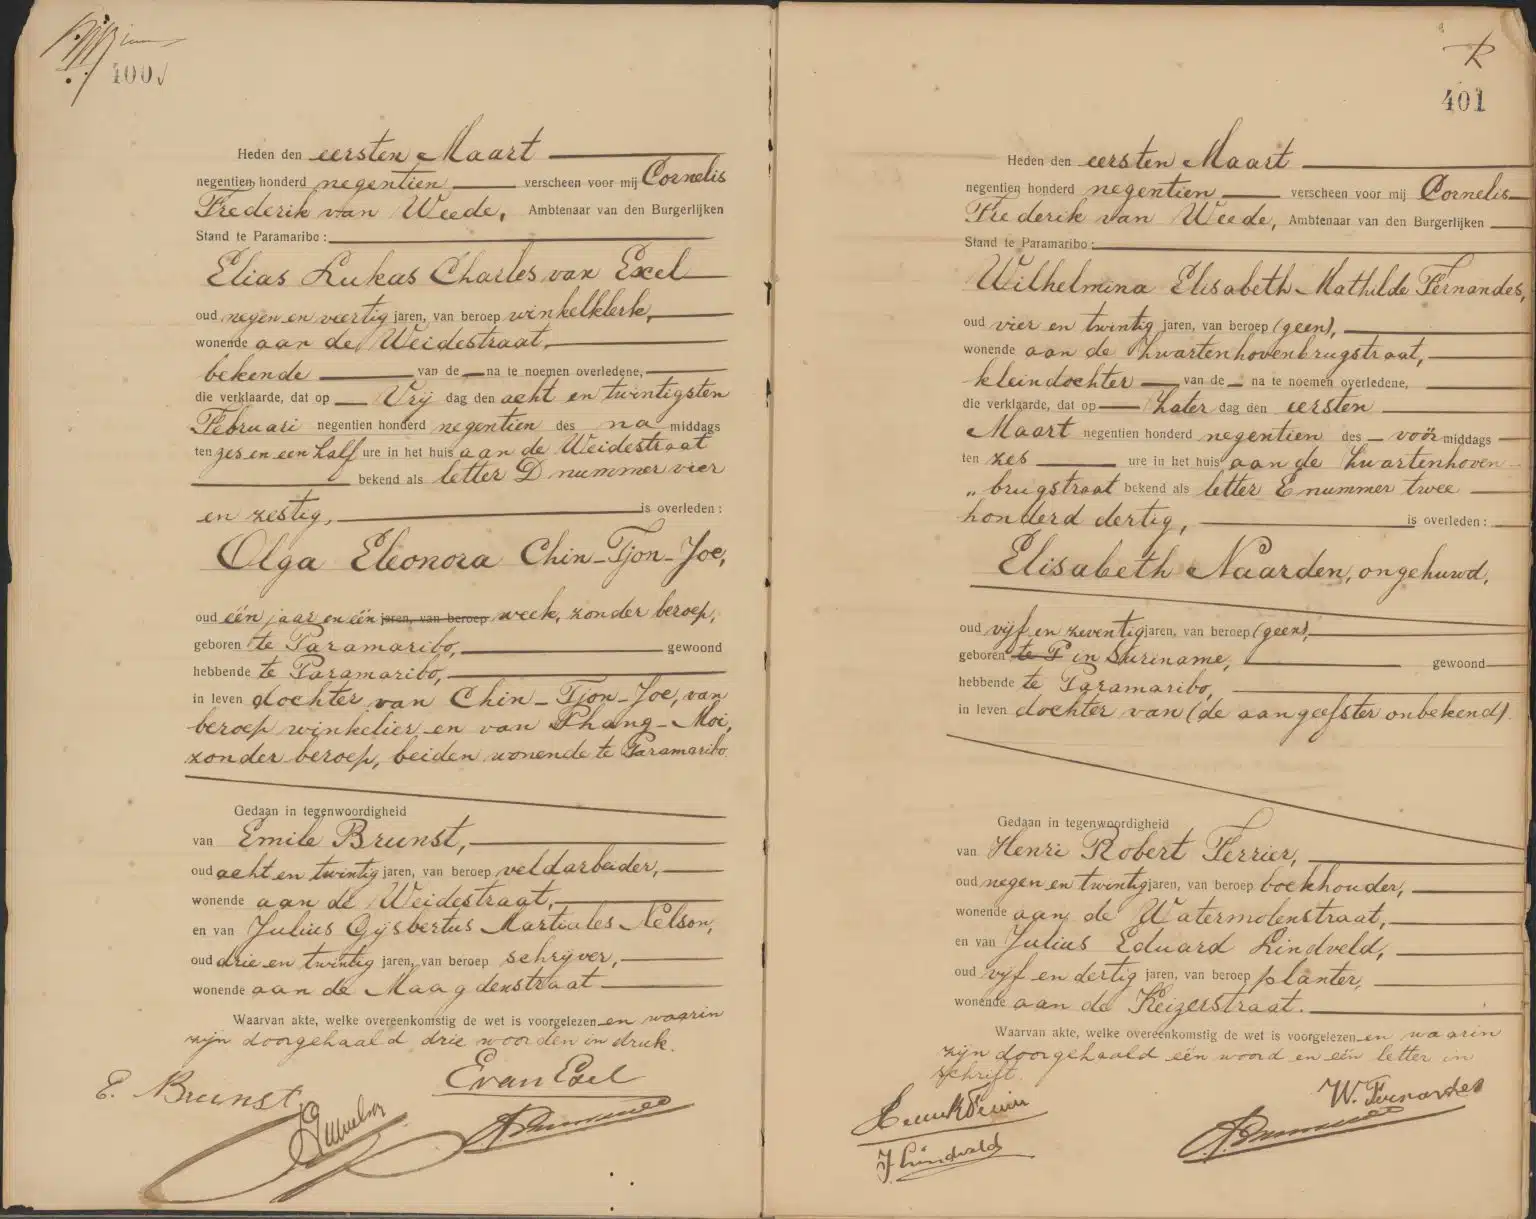 400
Heden den eersten Maart
negentien honderd negentien verscheen voor mij Cornelis
Frederik van Weede, Ambtenaar van den Burgerlijken
Stand te Paramaribo:
Elias Lukas Charles van Exel
oud negen en veertig jaren, van beroep winkelklerk,
wonende aan de Weidestraat,
bekende van de na te noemen overledene,
die verklaarde, dat op Vrij dag den acht en twintigsten
Februari negentien honderd negentien des na middags
ten zes en een half ure in het huis aan de Weidestraat
bekend als letter D nummer vier
en zestig, is overleden:
Olga Eleonora Chin-Tjon-Joe,
oud één jaar en één jaren, van beroep week, zonder beroep,
geboren te Paramaribo, gewoond
hebbende te Paramaribo,
in leven dochter van Chin-Tjon-Joe, van
beroep winkelier en van Phang-Moi,
zonder beroep, beiden wonende te Paramaribo.
Gedaan in tegenwoordigheid
van Emile Brunst,
oud acht en twintig jaren, van beroep veldarbeider,
wonende aan de Weidestraat,
en van Julius Gijsbertus Martiales Nelson,
oud drie en twintig jaren, van beroep schrijver,
wonende aan de Maagdenstraat
Waarvan akte, welke overeenkomstig de wet is voorgelezen en waarin
zijn doorgehaald drie woorden in druk.
E. Brunst
E van Exel
401
Heden den eersten Maart
negentien honderd negentien verscheen voor mij Cornelis
Frederik van Weede, Ambtenaar van den Burgerlijken
Stand te Paramaribo:
Wilhelmina Elisabeth Mathilde Fernandes,
oud vier en twintig jaren, van beroep (geen),
wonende aan de Zwartenhovenbrugstraat,
kleindochter van de na te noemen overledene,
die verklaarde, dat op Zater dag den eersten
Maart negentien honderd negentien des vóór middags
ten zes ure in het huis aan de Zwartenhoven-
„ brugstraat bekend als letter E nummer twee
honderd dertig, is overleden:
Elisabeth Naarden, ongehuwd,
oud vijf en zeventig jaren, van beroep (geen),
geboren te P in Suriname, gewoond
hebbende te Paramaribo,
in leven dochter van (de aangeefster onbekend).
Gedaan in tegenwoordigheid
van Henri Robert Ferrier,
oud negen en twintig jaren, van beroep boekhouder,
wonende aan de Watermolenstraat,
en van Julius Eduard Lindveld,
oud vijf en dertig jaren, van beroep planter,
wonende aan de Keizerstraat.
Waarvan akte, welke overeenkomstig de wet is voorgelezen en waarin
zijn doorgehaald één woord en één letter in
schrift.
W. Fernandes
J. Lindveld